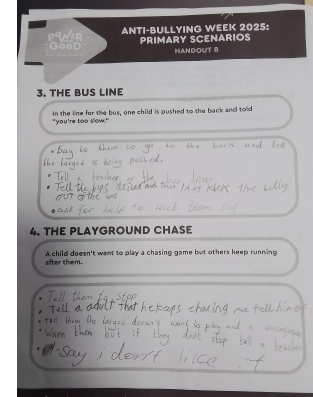 POWER
GOOD
ANTI-BULLYING WEEK 2025:
PRIMARY SCENARIOS
HANDOUT 8
3. THE BUS LINE
In the line for the bus, one child is pushed to the back and told
"you're too slow."
• Say to them to go to the back and tell
the target is being pushed.
• Tell a teacher or the bus driver
• Tell the bus driver and then they kick the bully
out of the bus
• ask for help to kick them out
4. THE PLAYGROUND CHASE
A child doesn't want to play a chasing game but others keep running
after them.
• Tell them to stop
• Tell a adult that he keeps chasing me tell him off
• Tell them the target doesn't want to play and is uncomfortable
• Warn them but if they don't stop tell a teacher
• Say i don't like it